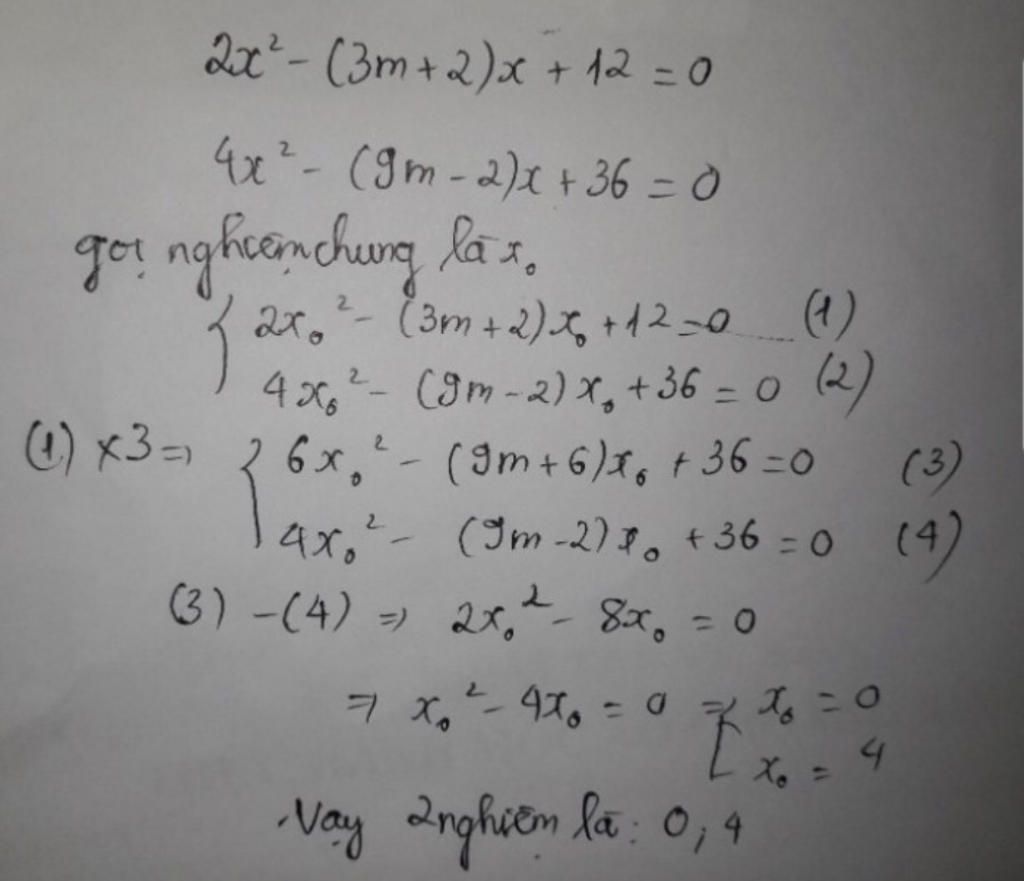 2x² - (3m+2)x + 12 = 0
4x² - (9m-2)x + 36 = 0
gọi nghiệm chung là x₀
{ 2x₀² - (3m+2)x₀ + 12 = 0 (1)
4x₀² - (9m-2)x₀ + 36 = 0 (2)
(1) x3 => { 6x₀² - (9m+6)x₀ + 36 = 0 (3)
4x₀² - (9m-2)x₀ + 36 = 0 (4)
(3) - (4) => 2x₀² - 8x₀ = 0
=> x₀² - 4x₀ = 0 => [ x₀ = 0
x₀ = 4
Vậy 2 nghiệm là: 0, 4